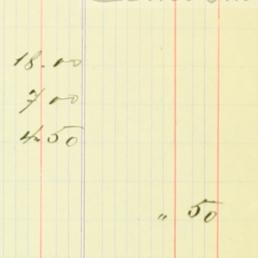 18.00
7 00
4 50
" 50